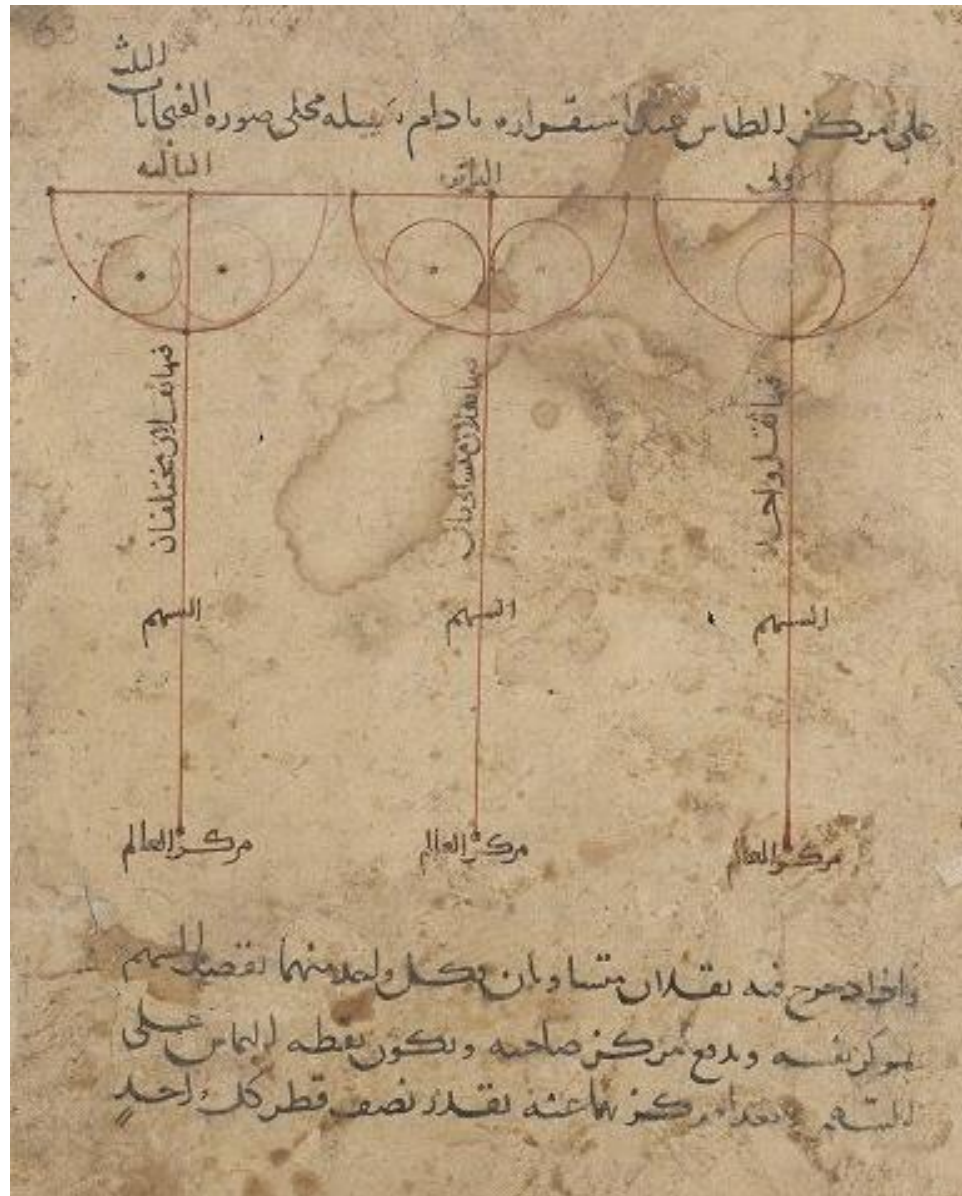 الثلث
على مركز الطاس عند استقراره مادام صوره الفنجانات
الاولى
الثانيه
الثالثه
فيها ثقل واحد
فيها ثقلان متساويان
فيها ثقلان مختلفان
السهم
السهم
السهم
مركز العالم
مركز العالم
مركز العالم
واذا دحرج فيه ثقلان متساويان فكل واحد منهما يقصد السهم
بمركز نفسه ويدفع مركز صاحبه وتكون نقطه التماس على
السهم وبعدا مركزيهما عنه بقدر نصف قطر كل واحد